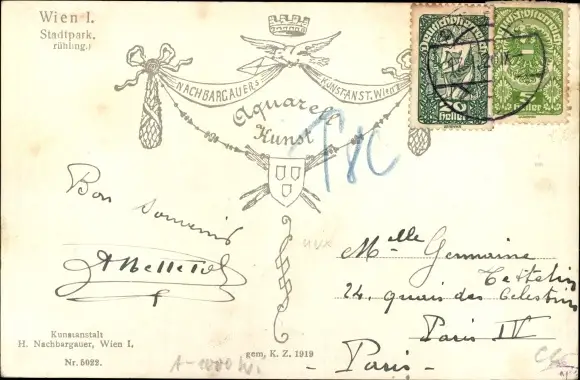 Wien I.
Stadtpark.
rühling.)
NACHBARGAUER'S KUNSTANST. Wien
Aquarell
Kunst
Deutschösterreich
Heller
Deutschösterreich
5
Heller
T
Bon souvenir
Melle Germaine
24, quais des Celestins
Paris IV
- Paris -
Kunstanstalt
H. Nachbargauer, Wien I.
Nr. 5022.
gem, K. Z. 1919